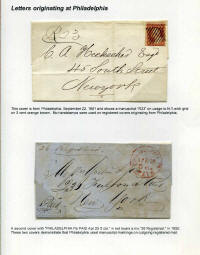 Letters originating at Philadelphia
R 23
C. A. Heckscher Esq
45 South Street
New york
This cover is from Philadelphia, September 22, 1861 and shows a manuscript "R23" on usage to N.Y. with grid
on 3 cent orange brown. No handstamps were used on registered covers originating from Philadelphia.
New York
A second cover with "PHILADELPHIA Pa PAID Apr 20 3 cts." in red bears a ms "20 Registered." in 1850.
These two covers demonstrate that Philadelphia used manuscript markings on outgoing registered mail.